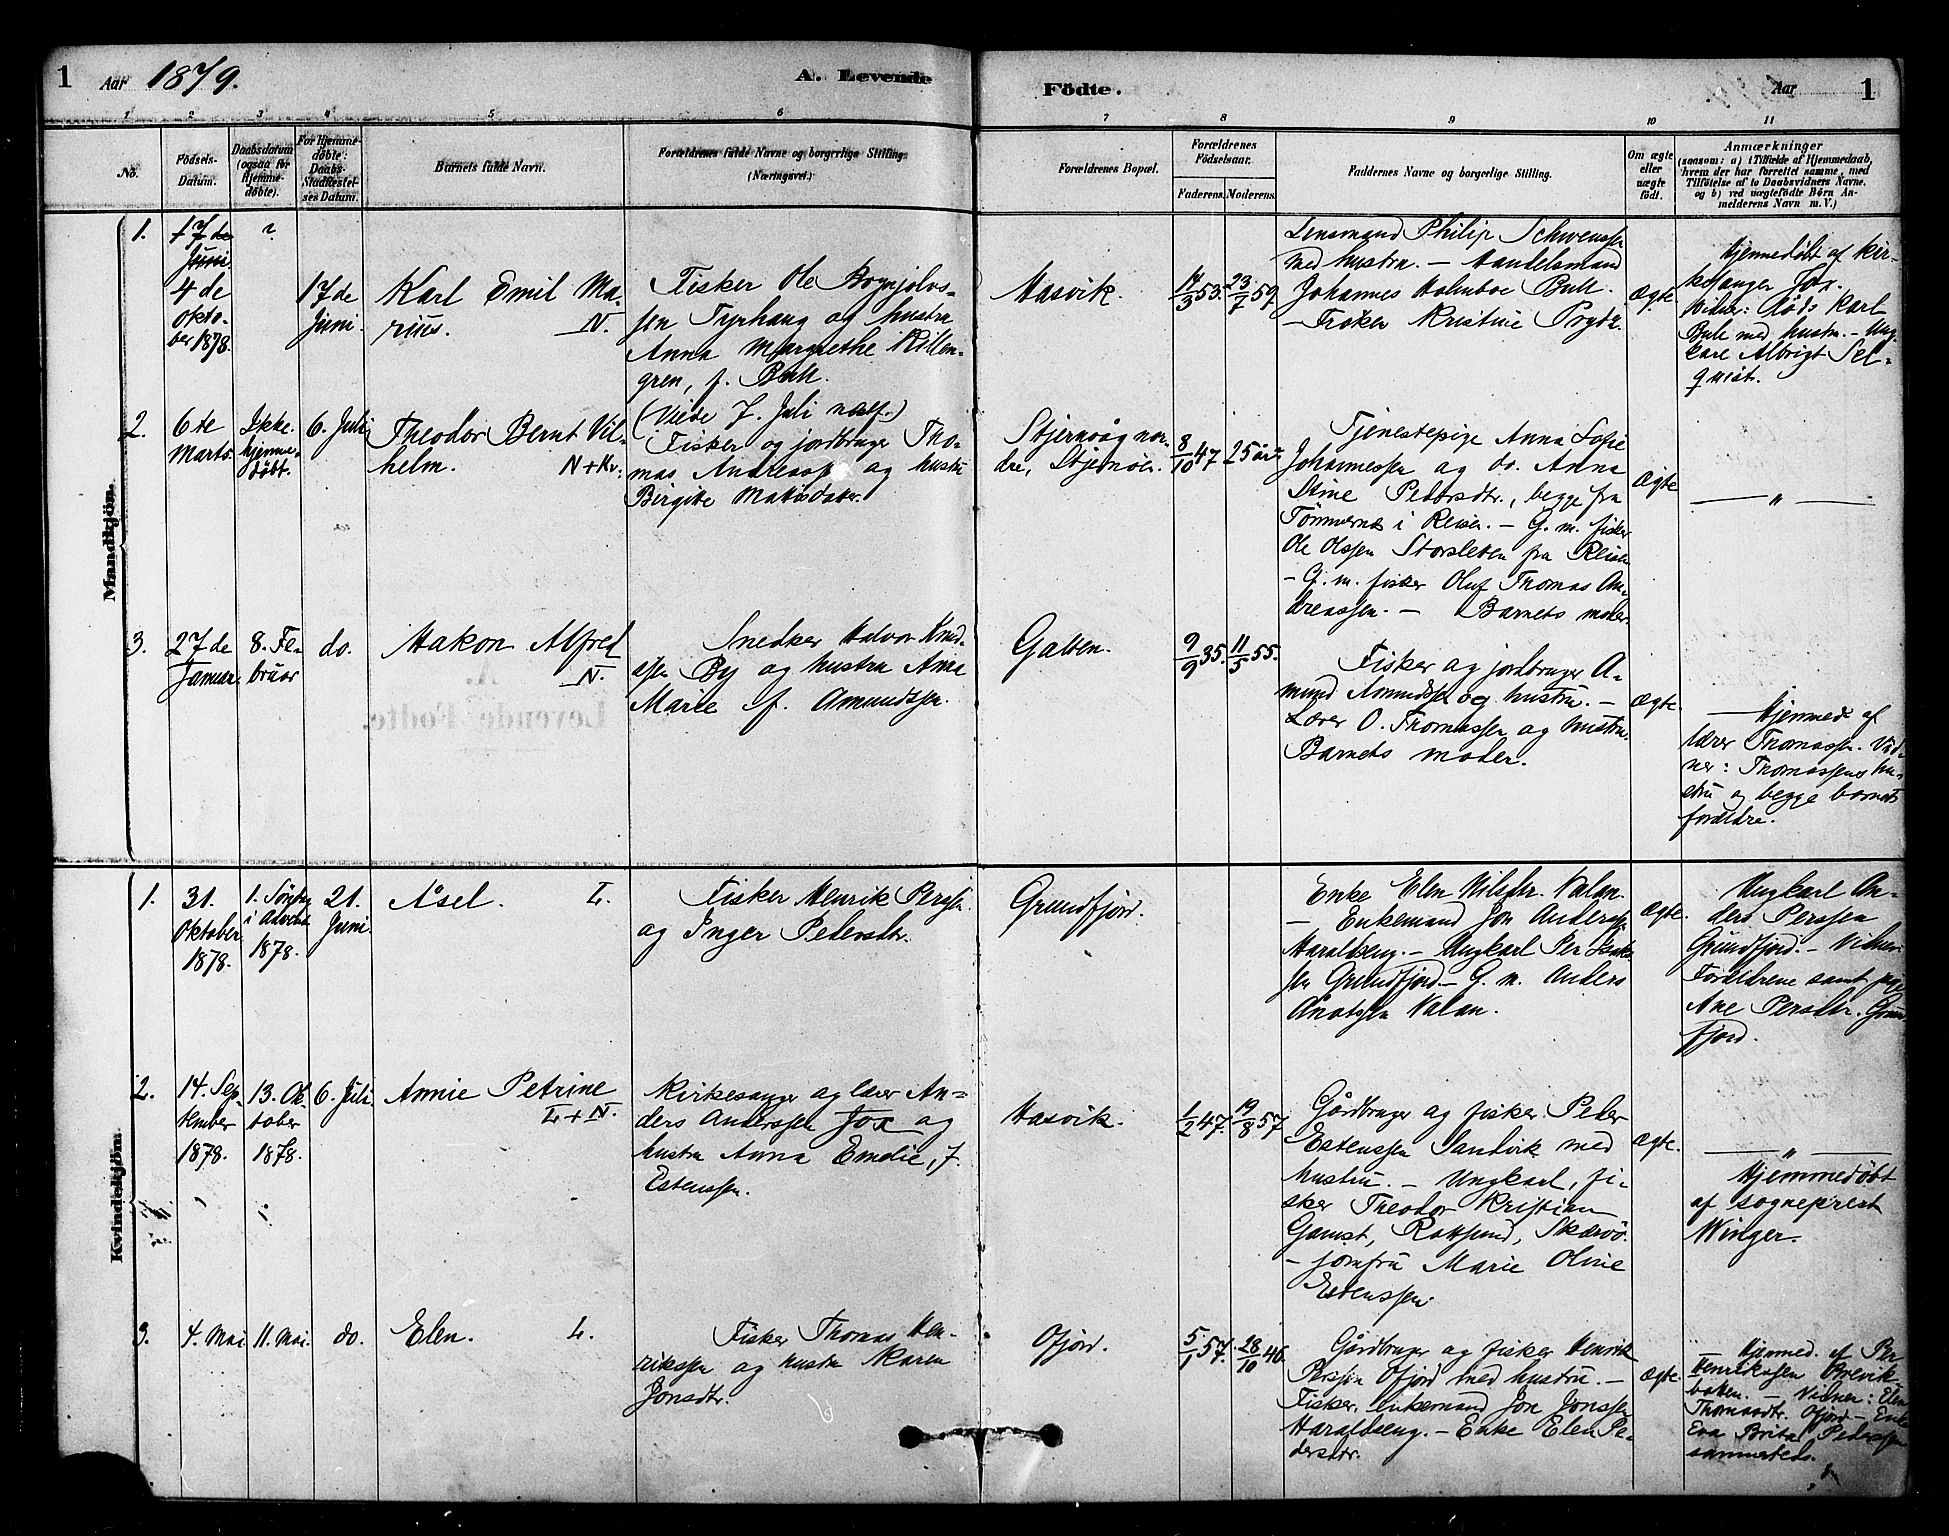 1 Aar 1879. A. Levende Födte. Aar 1
1 2 3 4 5 6 7 8 9 10 11
No.
Födsels-
Datum.
Daabsdatum
(ogsaa for
Hjemme-
döbte).
For Hjemme-
döbte:
Daabs-
Stadfæstel-
ses Datum.
Barnets fulde Navn.
Forældrenes fulde Navne og borgerlige Stilling.
(Næringsvei.)
Forældrenes Bopæl.
Forældrenes
Födselsaar.
Faderens. Moderens.
Faddernes Navne og borgerlige Stilling.
Om ægte
eller
uægte
födt.
Anmærkninger
(saasom: a) i Tilfælde af Hjemmedaab,
hvem der har forrettet samme, med
Tilföielse af to Daabsvidners Navne.
og b) ved uægtefödte Börn An-
melderens Navn m. V.)
Mandkjön.
1.
17 de
Juni.
4 de
Okto-
ber 1878.
?
17 de
Juni.
Karl Emil Ma-
rius. N.
Fisker Ole
sen Tyrhaug og hustru
Anna Margrethe Killen-
gren, f. Bull.
(Viede 7. Juli næstf.)
Hasvik.
19/3 53. 23/7 59.
Lensmand Philip Schwenssen
med hustru. — Handelsmand
Johannes Holmboe Bull.
— Frøken Kristine Prydz.
Ægte.
Hjemmedøbt af kir-
kesanger Fox.
Vidner: Karl
Bull med hustru. — Ung-
karl Albrigt Sel-
qvist.
2.
6 te
Marts.
Ikke
hjemme-
døbt.
6. Juli
Theodor Bernt Vil-
helm. N + Kv:
Fisker og jordbruger Tho-
mas Andreassen og hustru
Birgite Mathisdater.
Stjernvåg nor-
dre, Stjernöen.
8/10 47 25 år.
Tjenestepige Anna Sofie
Johannessen og do. Anna
Stine Pedersdtr., begge fra
Tömmernæs i Reisen. — G. m. fisker
Ole Olssen Storsleten fra Reisen
— G. m. fisker Oluf Thomas An-
dreassen. — Barnets moder.
Ægte
— " —
3.
27 de
Januar.
8. Fe-
bruar
do.
Hakon Alfred
N.
Snedker Halvor Knud-
sen By og hustru Ane
Marie f. Amundsen.
Galten.
9/9 35. 11/5 55.
Fisker og jordbruger A-
mund Amundsen og hustru. —
Lærer O. Thomassen og hustru.
Barnets moder.
Ægte.
Hjemmed. af
lærer Thomassen. Vid-
ner: Thomassens hu-
stru og begge barnets
forældre.
Kvindekjön.
1.
31.
Oktober
1878.
1. Søndag
i Advent
1878.
21.
Juni.
Åsel. L.
Fisker Henrik Perssen
og Inger Pedersdtr.
Grundfjord.
Enke Elen Nilsdtr. Valan.
— Enkemand Jon Anderssen
Haraldseng. — Ungkarl Per Isak-
sen Grundfjord. — G. m. Anders
Valan.
Ægte.
Ungkarl An-
ders Perssen
Grundfjord. — Vidner:
Forældrene samt pige
Ane Persdtr. Grund-
fjord.
2.
14. Sep-
tember
1878.
13. Ok-
tober
1878.
6. Juli.
Annie Petrine
L + N.
Kirkesanger og lærer An-
ders Anderssen Fox og
hustru Anna Emelie, f.
Estenssen.
Hasvik.
1/2 47. 19/8 57
Gårdbruger og fisker Peder
Estenssen Sandvik med
hustru. — Ungkarl, fi-
sker Theodor Kristian
Gamst, Rotsund, Skærvö.
— jomfru Marie Oline
Estenssen.
Ægte.
— " —
Hjemmedøbt
af sogneprest
Winger.
3.
4. Mai.
11. Mai.
do.
Elen. L.
Fisker Thomas Hen-
rikssen og hustru Karen
Jonsdtr.
Ofjord.
5/1 57. 28/10 46.
Gårdbruger og fisker Henrik
Perssen Ofjord med hustru. —
Fisker, enkemand Jon Jonssen
Haraldseng. — Enke Elen Pe-
dersdtr.
Ægte.
Hjemmed. af Per
Henrikssen Brevik-
botten. — Vidner: Elen
Thomasdtr. Ofjord — Enke
Eva Brita Pederssen
sammesteds.